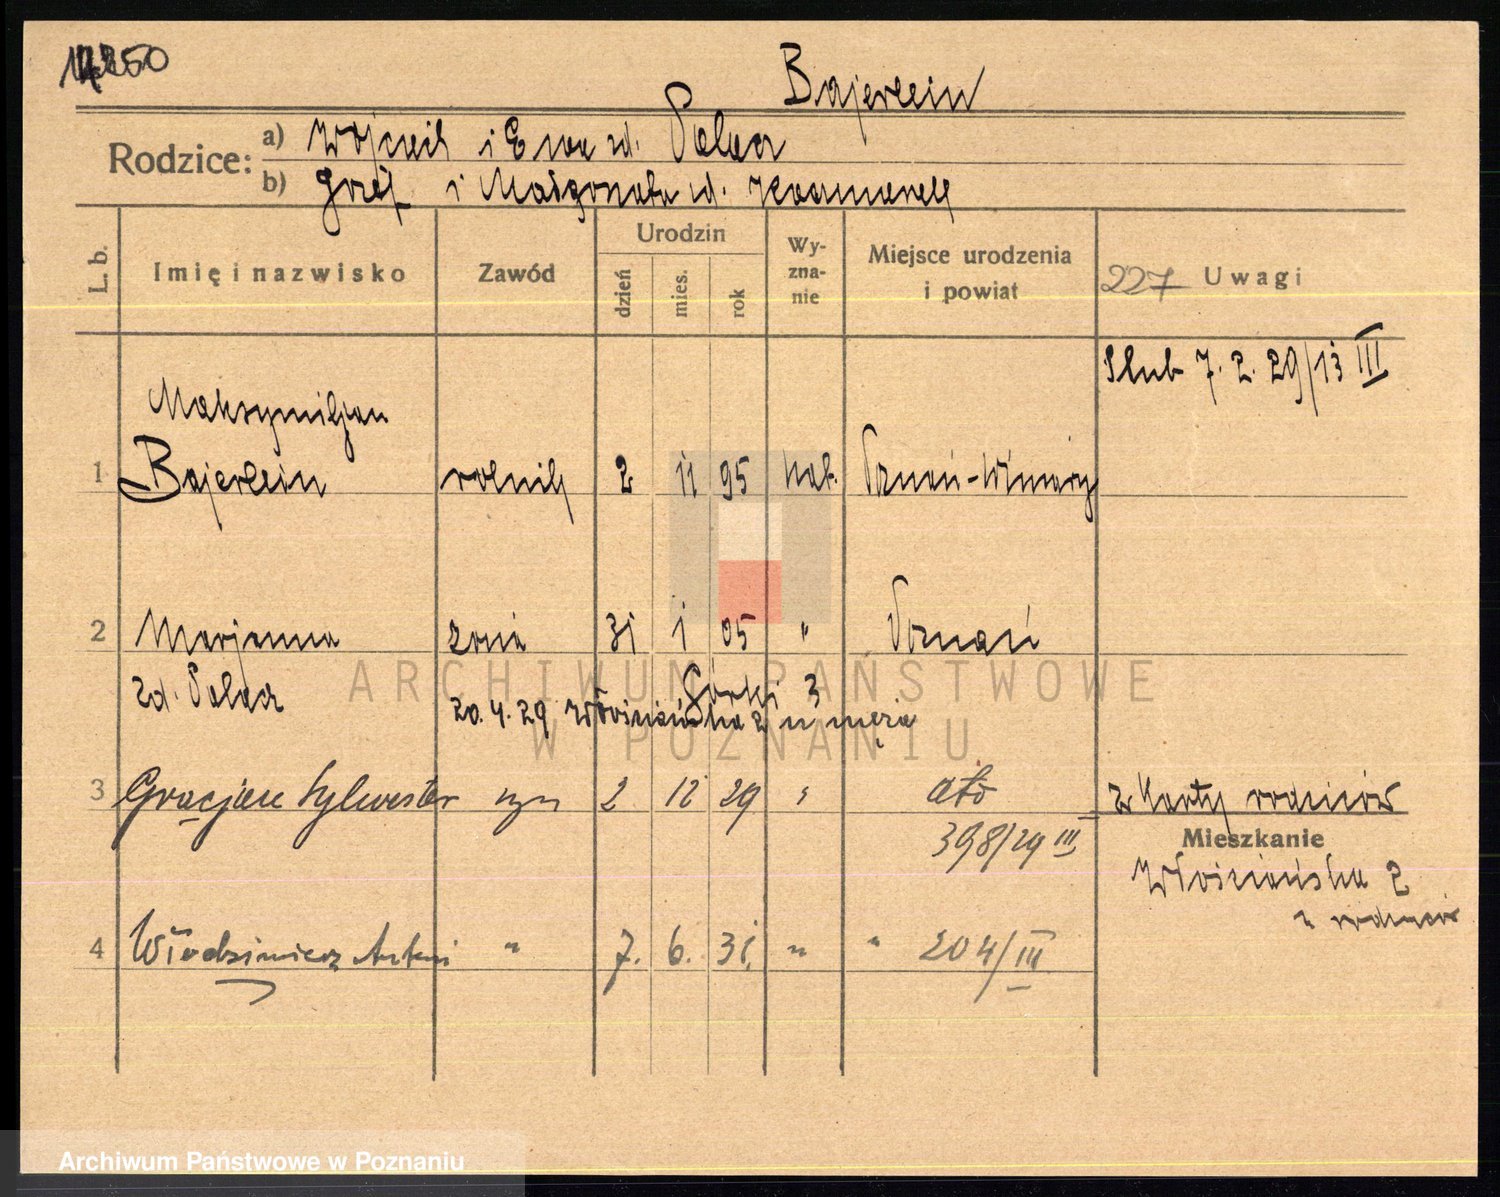 Bajerlein
Rodzice: a) Wojciech i Ewa zd. Palacz
b) Józef i Małgorzata zd. Kaczmarek
L. b. Imię i nazwisko Zawód Urodzin dzień mies. rok Wy-zna-nie Miejsce urodzenia i powiat 227 Uwagi
Slub 7. 2. 29/13 III
Maksymiljan
1 Bajerlein rolnik 2 11 95 kat. Poznań-Winiary
2 Marjanna żona 31 1 05 " Poznań
zd. Palacz
Górki 3
20. 4. 29 Włościańska 2 u męża
3 Gracjan Sylwester syn 2 12 29 " z karty rodziców
398/29 III
Mieszkanie
Włościańska 2
u rodziców
4 Włodzimierz Antoni " 7. 6. 31. " " 204/III
ARCHIWUM PAŃSTWOWE
W POZNANIU
Archiwum Państwowe w Poznaniu